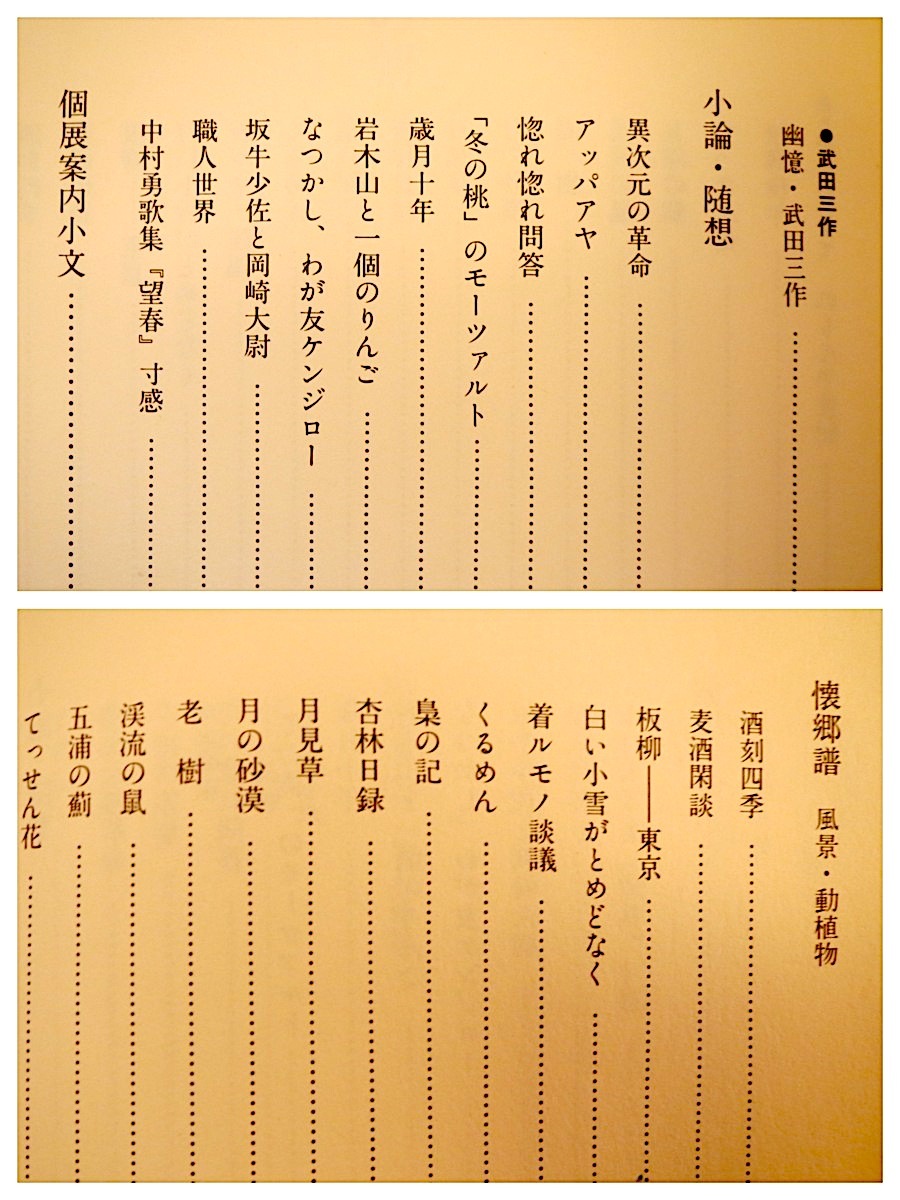 ●武田三作
幽憶・武田三作
小論・随想
異次元の革命
アッパアヤ
惚れ惚れ問答
「冬の桃」のモーツァルト
歳月十年
岩木山と一個のりんご
なつかし、わが友ケンジロー
坂牛少佐と岡崎大尉
職人世界
中村勇歌集『望春』寸感
個展案内小文
懐郷譜 風景・動植物
酒刻四季
麦酒閑談
板柳――東京
白い小雪がとめどなく
着ルモノ談議
くるめん
梟の記
杏林日録
月見草
月の砂漠
老 樹
渓流の鼠
五浦の薊
てっせん花